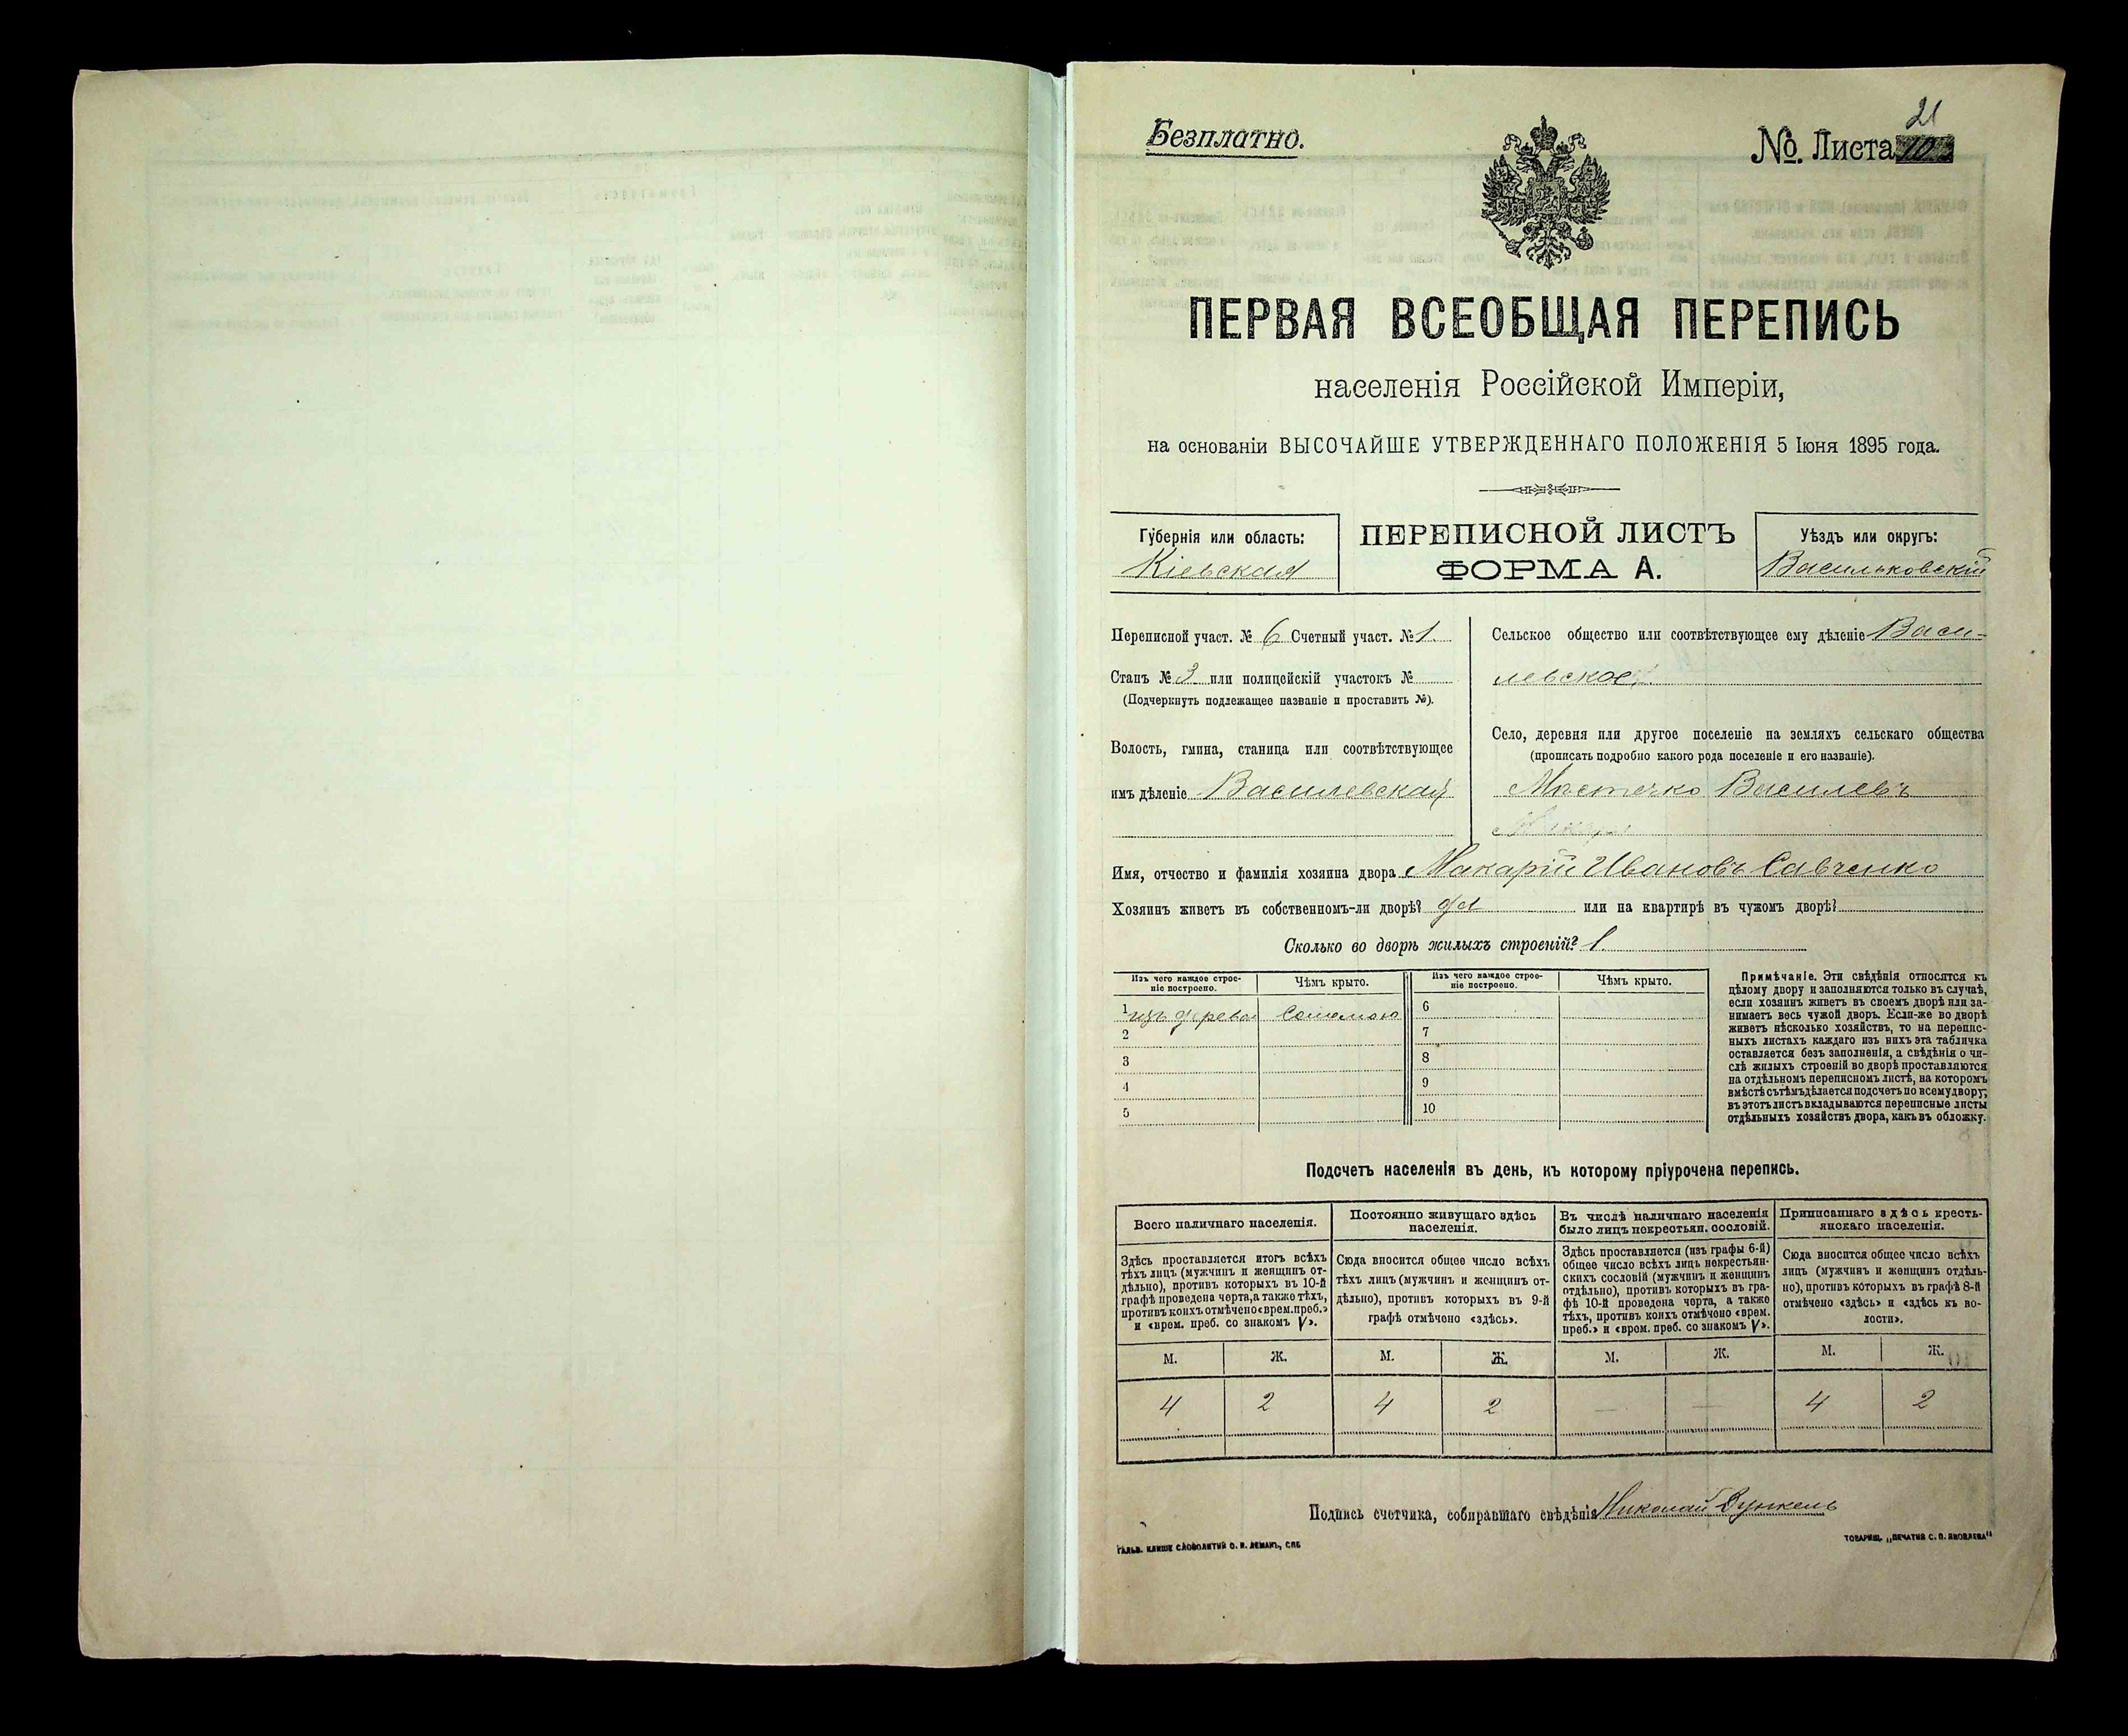 Безплатно.
21
№. Листа 10
ПЕРВАЯ ВСЕОБЩАЯ ПЕРЕПИСЬ
населенія Россійской Имперіи,
на основаніи ВЫСОЧАЙШЕ УТВЕРЖДЕННАГО ПОЛОЖЕНІЯ 5 Іюня 1895 года.
Губернія или область:
Кіевская
ПЕРЕПИСНОЙ ЛИСТЪ
ФОРМА А.
Уѣздъ или округъ:
Васильковскій
Переписной участ. № 6 Счетный участ. № 1.
Станъ № 3 или полицейскій участокъ №
(Подчеркнуть подлежащее названіе и проставить №).
Волость, гмина, станица или соотвѣтствующее
имъ дѣленіе Василевская
Сельское общество или соотвѣтствующее ему дѣленіе Васи-
левское
Село, деревня или другое поселеніе на земляхъ сельскаго общества
(прописать подробно какого рода поселеніе и его названіе).
Мѣстечко Василевъ
Имя, отчество и фамилія хозяина двора Макарій Ивановъ Савченко
Хозяинъ живетъ въ собственномъ-ли дворѣ? да или на квартирѣ въ чужомъ дворѣ?
Сколько во дворѣ жилыхъ строеній? 1
Изъ чего каждое строе-
ніе построено.
Чѣмъ крыто.
Изъ чего каждое строе-
ніе построено.
Чѣмъ крыто.
1 изъ дерева Соломою 6
2 7
3 8
4 9
5 10
Примѣчаніе. Эти свѣдѣнія относятся къ
цѣлому двору и заполняются только въ случаѣ,
если хозяинъ живетъ въ своемъ дворѣ или за-
нимаетъ весь чужой дворъ. Если-же во дворѣ
живетъ нѣсколько хозяйствъ, то на перепис-
ныхъ листахъ каждаго изъ нихъ эта табличка
оставляется безъ заполненія, а свѣдѣнія о чи-
слѣ жилыхъ строеній во дворѣ проставляются
на отдѣльномъ переписномъ листѣ, на которомъ
вмѣстѣ съ тѣмъ дѣлается подсчетъ по всему двору;
въ этотъ листъ вкладываются переписные листы
отдѣльныхъ хозяйствъ двора, какъ въ обложку.
Подсчетъ населенія въ день, къ которому пріурочена перепись.
Всего наличнаго населенія.
Здѣсь проставляется итогъ всѣхъ
тѣхъ лицъ (мужчинъ и женщинъ от-
дѣльно), противъ которыхъ въ 10-й
графѣ проведена черта, а также тѣхъ,
противъ коихъ отмѣчено «врем. преб.»
и «врем. преб. со знакомъ V».
Постоянно живущаго здѣсь
населенія.
Сюда вносится общее число всѣхъ
тѣхъ лицъ (мужчинъ и женщинъ от-
дѣльно), противъ которыхъ въ 9-й
графѣ отмѣчено «здѣсь».
Въ числѣ наличнаго населенія
было лицъ некрестьян. сословій.
Здѣсь проставляется (изъ графы 6-й)
общее число всѣхъ лицъ некрестьян-
скихъ сословій (мужчинъ и женщинъ
отдѣльно), противъ которыхъ въ гра-
фѣ 10-й проведена черта, а также
тѣхъ, противъ коихъ отмѣчено «врем.
преб.» и «врем. преб. со знакомъ V».
Приписаннаго здѣсь кресть-
янскаго населенія.
Сюда вносится общее число всѣхъ
лицъ (мужчинъ и женщинъ отдѣль-
но), противъ которыхъ въ графѣ 8-й
отмѣчено «здѣсь» и «здѣсь къ во-
лости».
М. Ж. М. Ж. М. Ж. М. Ж.
4 2 4 2 — — 4 2
Подпись счетчика, собиравшаго свѣдѣнія Николай Дункель
ГАЛЬВ. КЛИШЕ СЛОВОЛИТНИ О. И. ЛЕМАНЪ, СПБ.
ТОВАРИЩ. „ПЕЧАТНЯ С. П. ЯКОВЛЕВА“